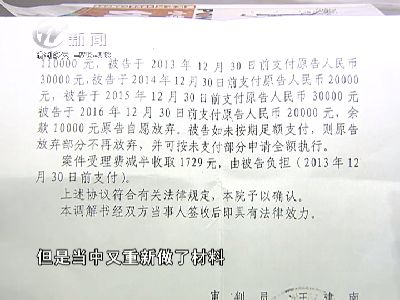 新闻
110000元，被告于 2013 年 12 月 30 日前支付原告人民币
30000元,被告于2014年12月30日前支付原告人民币20000
元，被告于2015年12月30日前支付原告人民币30000元
被告于2016年12月30日前支付原告人民币20000元，余
款10000元原告自愿放弃。被告如未按期足额支付，则原告
放弃部分不再放弃，并可按未支付部分申请全额执行。
案件受理费减半收取1729元，由被告负担（2013年12
月30日前支付）。
上述协议符合有关法律规定，本院予以确认。
本调解书经双方当事人签收后即具有法律效力。
但是当中又重新做了材料
审 判 员 王 建 南